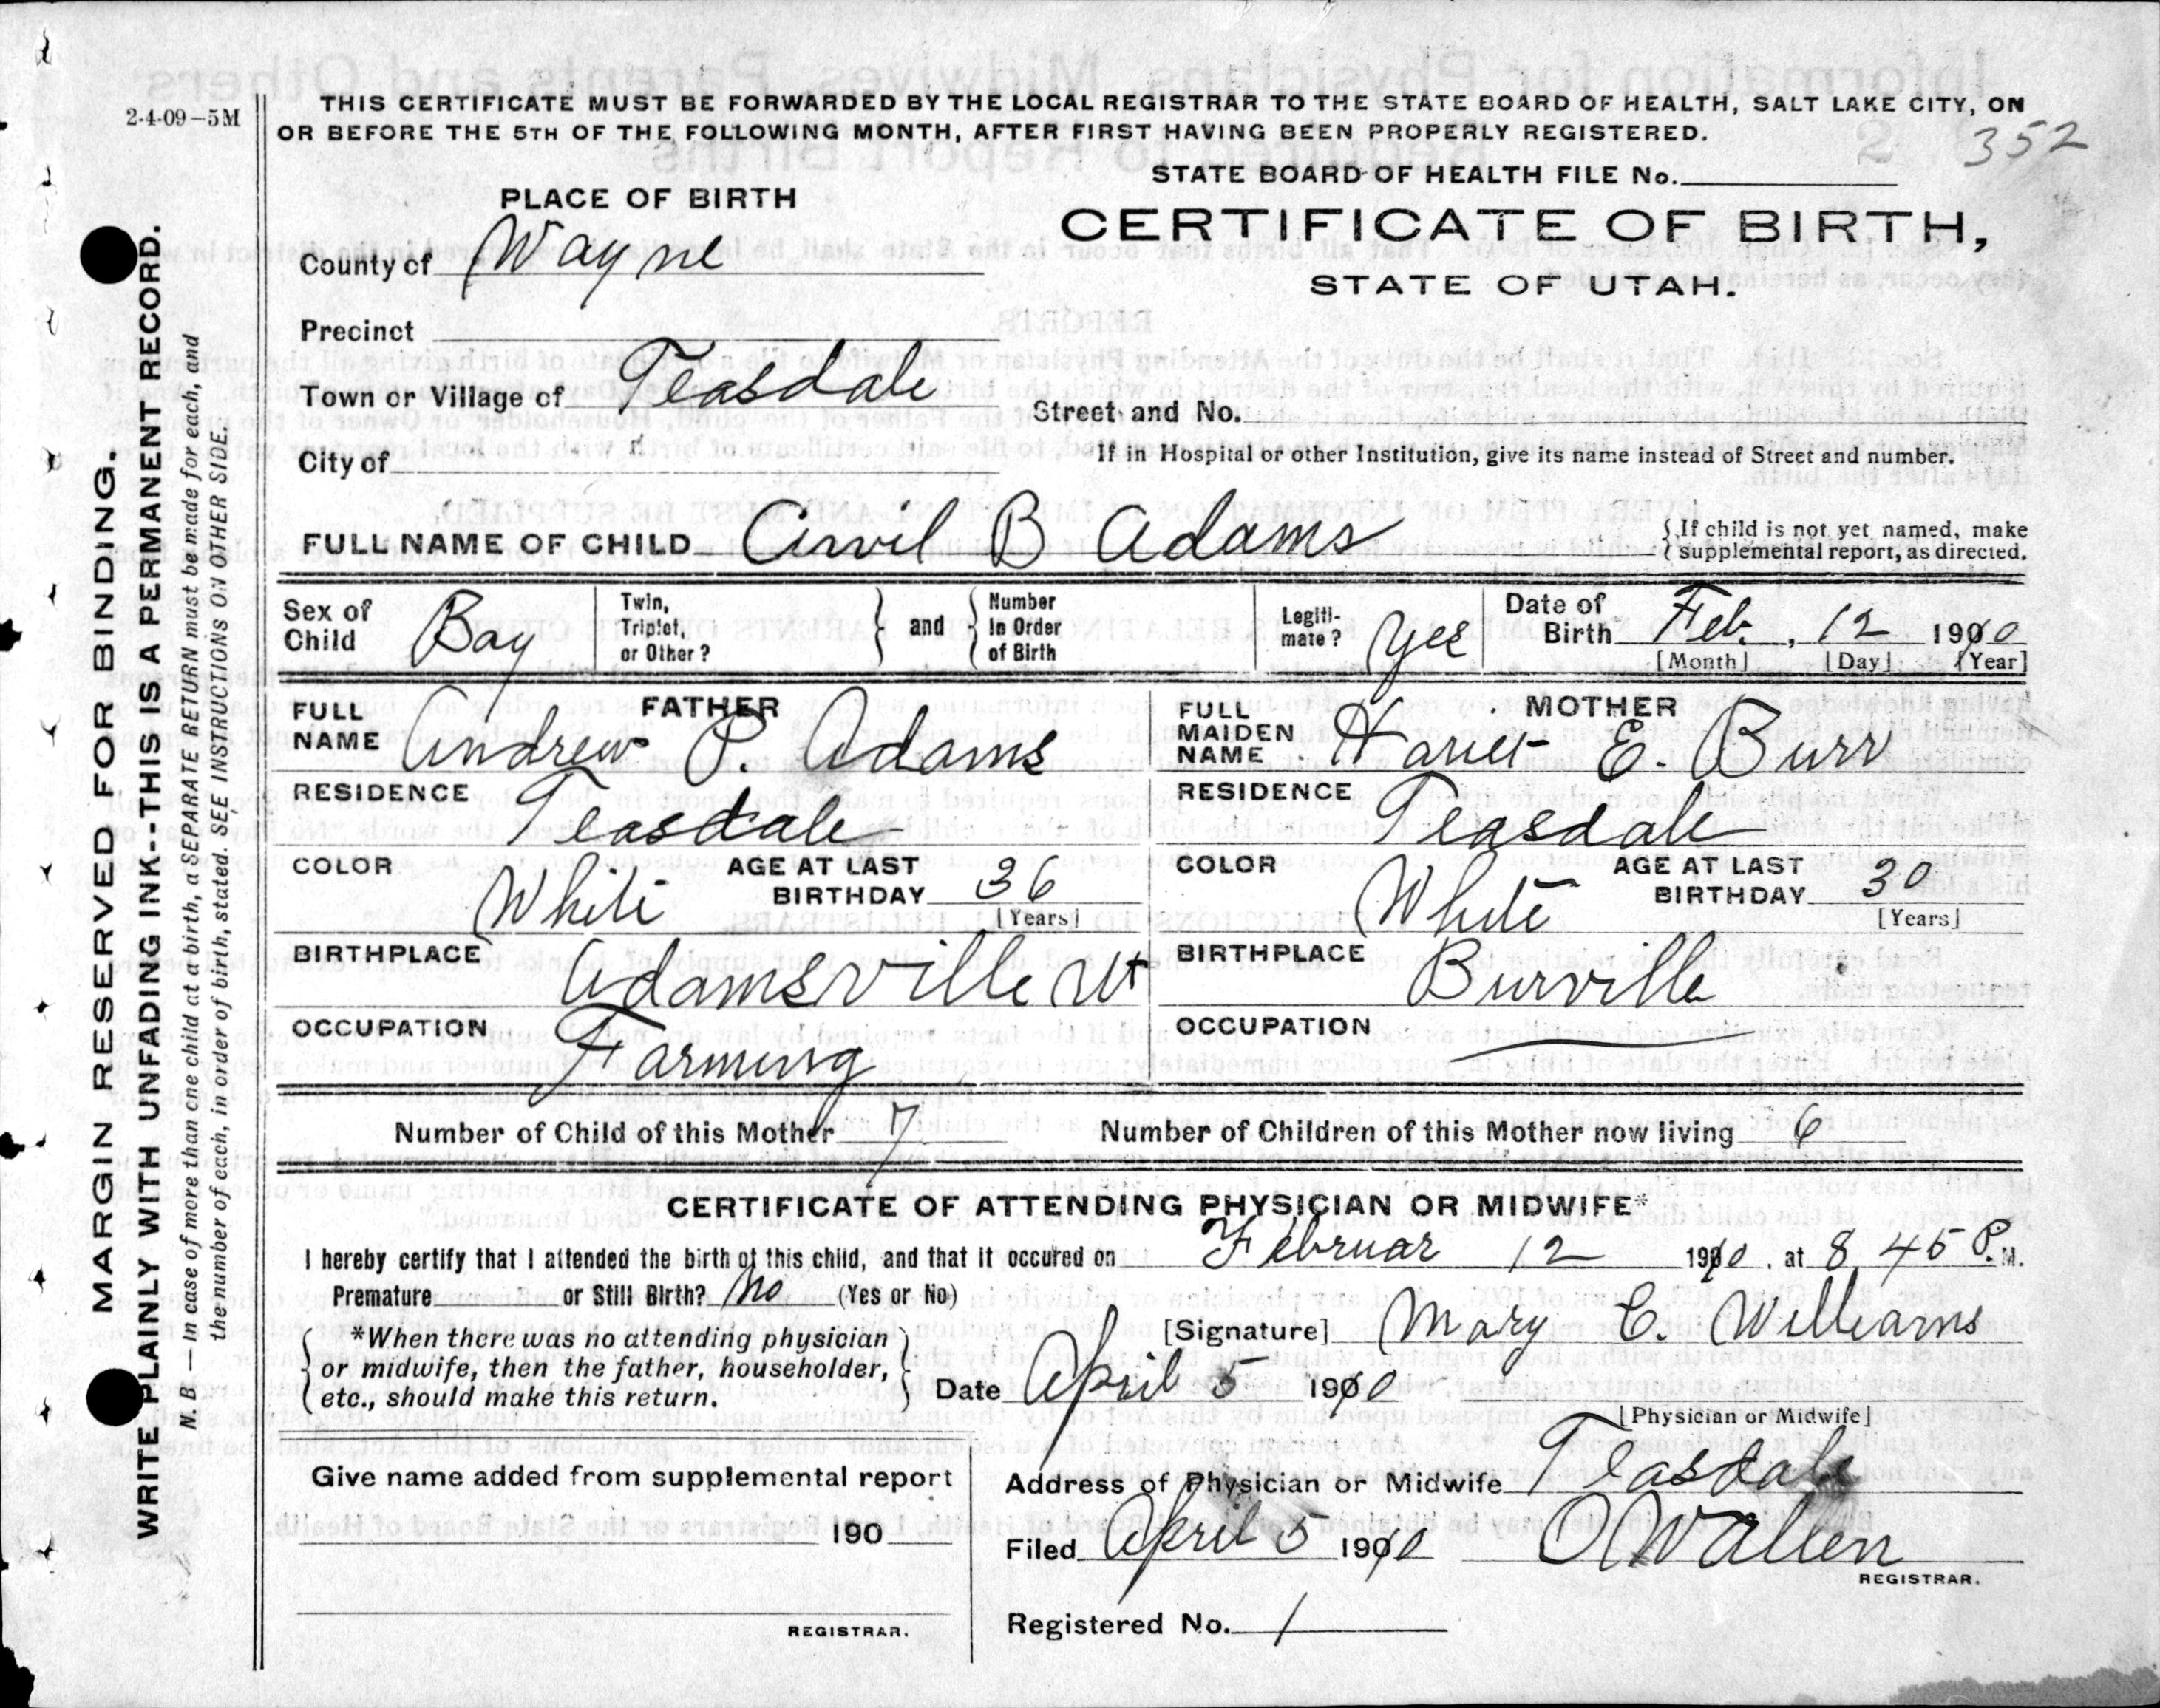 2-4-09-5M
THIS CERTIFICATE MUST BE FORWARDED BY THE LOCAL REGISTRAR TO THE STATE BOARD OF HEALTH, SALT LAKE CITY, ON
OR BEFORE THE 5TH OF THE FOLLOWING MONTH, AFTER FIRST HAVING BEEN PROPERLY REGISTERED.
352
STATE BOARD OF HEALTH FILE No.
CERTIFICATE OF BIRTH,
STATE OF UTAH.
PLACE OF BIRTH
County of Wayne
Precinct
Town or Village of Teasdale
Street and No.
City of
If in Hospital or other Institution, give its name instead of Street and number.
FULL NAME OF CHILD Arvil B Adams
{If child is not yet named, make
supplemental report, as directed.
Sex of Child Boy
Twin, Triplet, or Other?
and
Number in Order of Birth
Legiti-mate? yes
Date of Birth Feb. , 12 1910
[Month] [Day] [Year]
FATHER
FULL NAME Andrew P. Adams
RESIDENCE Teasdale
COLOR White AGE AT LAST BIRTHDAY 36
[Years]
BIRTHPLACE Adamsville Ut
OCCUPATION Farming
MOTHER
FULL MAIDEN NAME Hariet E. Burr
RESIDENCE Teasdale
COLOR White AGE AT LAST BIRTHDAY 30
[Years]
BIRTHPLACE Burville
OCCUPATION
Number of Child of this Mother 7 Number of Children of this Mother now living 6
CERTIFICATE OF ATTENDING PHYSICIAN OR MIDWIFE*
I hereby certify that I attended the birth of this child, and that it occured on Februar 12 1910, at 8 45 P. M.
Premature or Still Birth? No (Yes or No)
*When there was no attending physician
or midwife, then the father, householder,
etc., should make this return.
[Signature] Mary C. Williams
Date April 5 1910
[Physician or Midwife]
Give name added from supplemental report
190
REGISTRAR.
Address of Physician or Midwife Teasdale
Filed April 5 1910
REGISTRAR.
Registered No. 1
MARGIN RESERVED FOR BINDING.
WRITE PLAINLY WITH UNFADING INK--THIS IS A PERMANENT RECORD.
N. B.—In case of more than one child at a birth, a SEPARATE RETURN must be made for each, and
the number of each, in order of birth, stated. SEE INSTRUCTIONS ON OTHER SIDE.